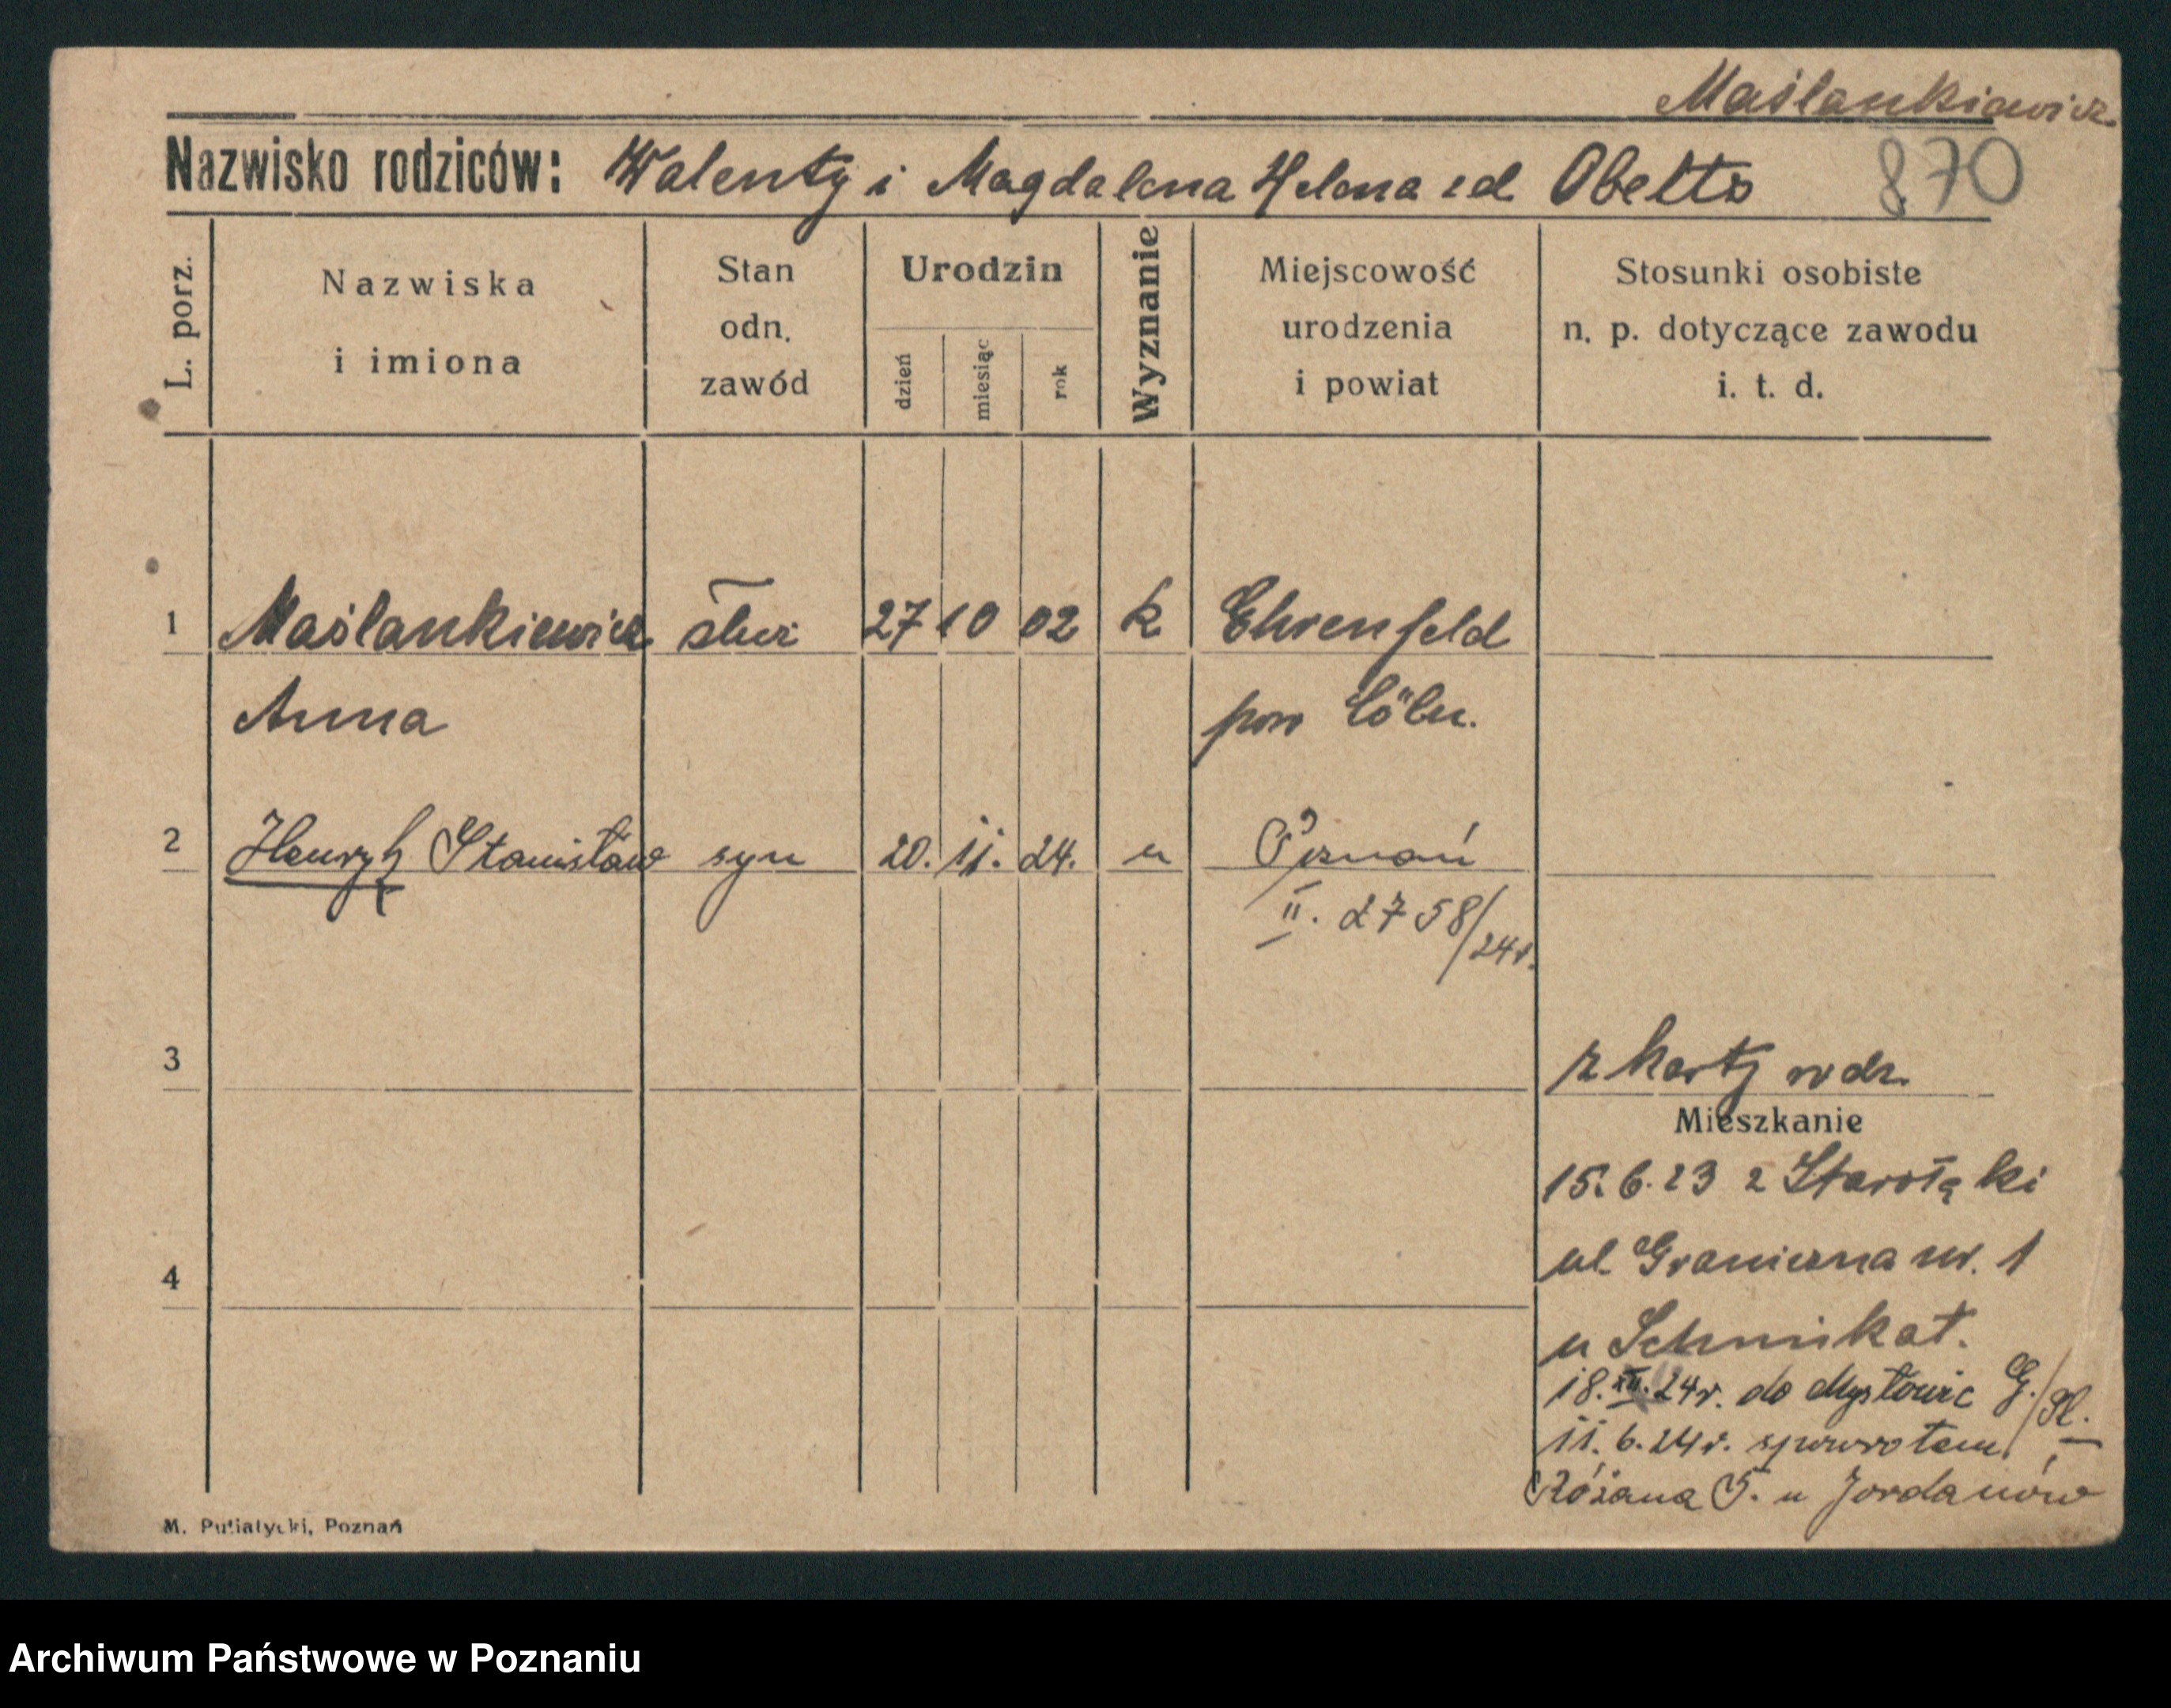 Maślankiewicz
Nazwisko rodziców: Walenty i Magdalena Helena zd Obelts
870
L. porz.
Nazwiska
i imiona
Stan
odn.
zawód
Urodzin
dzień
miesiąc
rok
Wyznanie
Miejscowość
urodzenia
i powiat
Stosunki osobiste
n. p. dotyczące zawodu
i. t. d.
1 Maślankiewicz służ 27 10 02 k Ehrenfeld
Anna pow Cöln.
2 Henryk Stanisław syn 20. 11. 24. " Poznań
II. 2758/24r.
3 z karty rodz.
Mieszkanie
15.6.23 z Starołęki
4 ul Graniczna nr. 1
u Schmikat.
18. XII. 24r. do Mysłowic G./Śl.
11. 6. 24r. spowrotem
Różana 5. u Jordanów
M. Putiatycki, Poznań
Archiwum Państwowe w Poznaniu